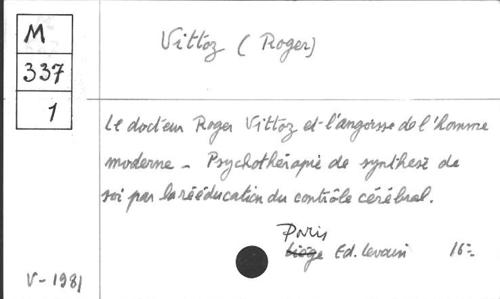 M
337
1
Vittoz (Roger)
Le docteur Roger Vittoz et l'angoisse de l'homme
moderne - Psychothérapie de synthèse de
soi par la rééducation du contrôle cérébral.
Paris
Liège Ed. Levain 16=
V-1981